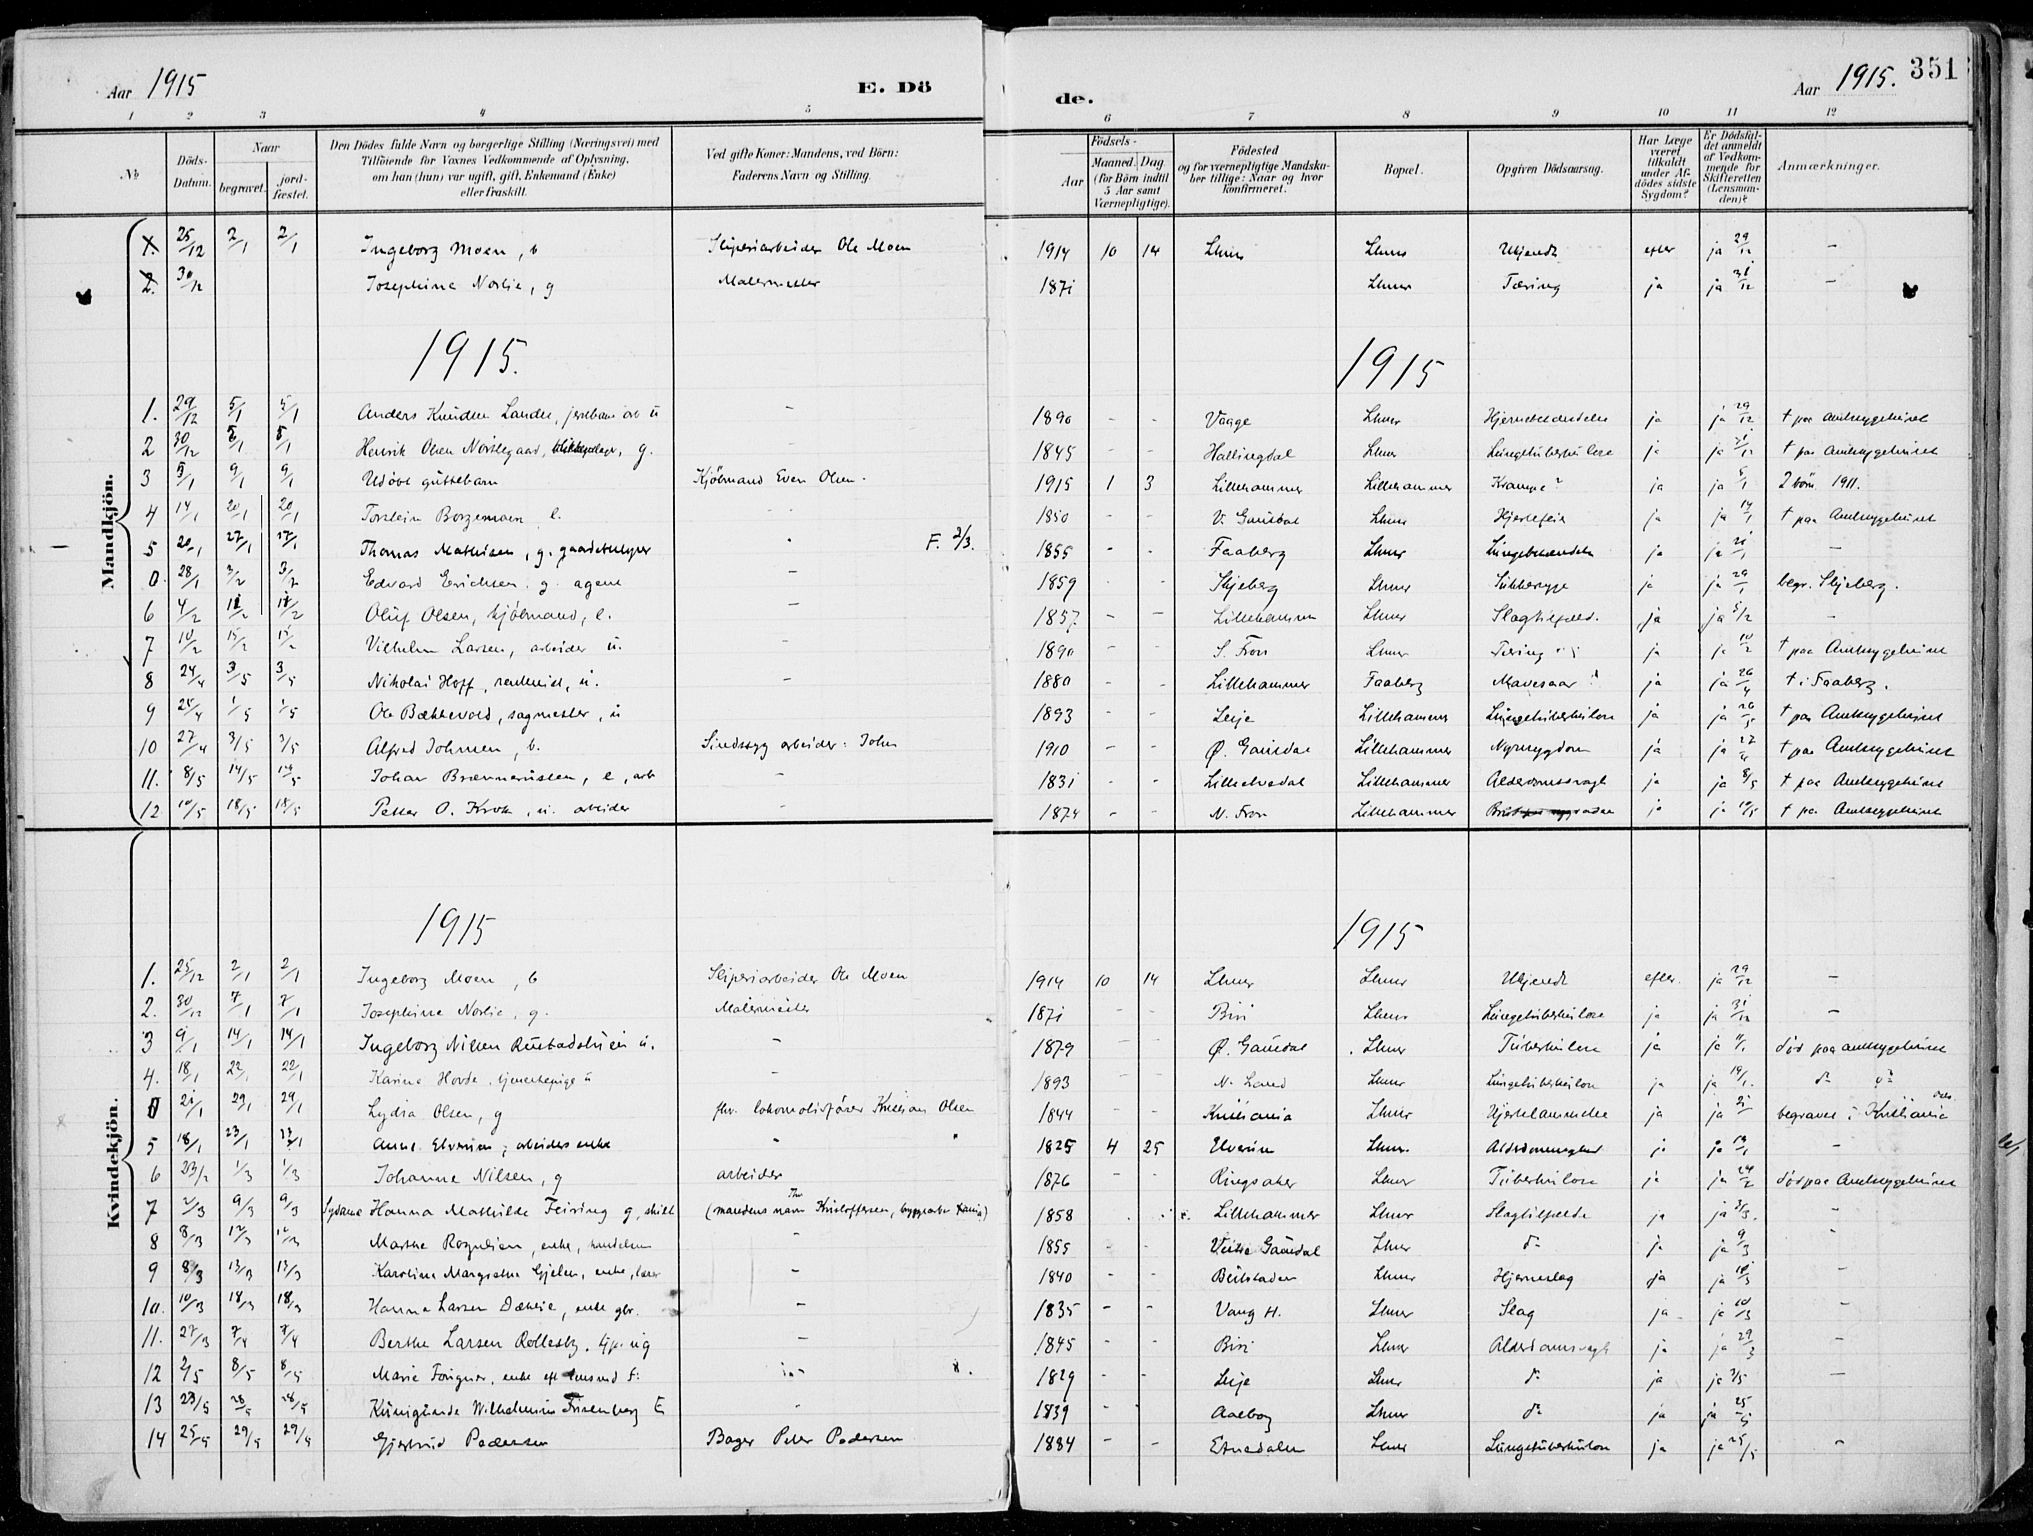 Aar 1915
E. Dö
de.
Aar 1915. 351
1 2 3 4 5 6 7 8 9 10 11 12
No
Döds-Datum.
Naar
begravet.
jord-fæstet.
Den Dödes fulde Navn og borgerlige Stilling (Næringsvei) med
Tilföiende for Voxnes Vedkommende af Oplysning,
om han (hun) var ugift, gift, Enkemand (Enke)
eller fraskilt.
Ved gifte Koner: Mandens, ved Börn:
Faderens Navn og Stilling.
Födsels-
Aar
Maaned. Dag
(for Börn indtil
5 Aar samt
Værnepligtige).
Födested
og for værnepligtige Mandska-
ber tillige: Naar og hvor
konfirmeret.
Bopæl.
Opgiven Dödsaarsag.
Har Læge
været
tilkaldt
under Af-
dödes sidste
Sygdom?
Er Dödsfal-
det anmeldt
af Vedkom-
mende for
Skifteretten
(Lensman-
den)?
Anmærkninger.
1. 25/12 2/1 2/1 Ingeborg Moen, b Sliperiarbeider Ole Moen 1914 10 14 Lhmr Lhmr Ukjendt efter ja 29/12 –
2. 30/12 Josephine Norlie, g Malermester 1871 Lhmr Tæring ja ja 31/12 –
1915. 1915
Mandkjön.
1. 29/12 5/1 5/1 Anders Knudsen u – 1890 - - Vaage Lhmr ja ja 29/12 † paa Amtssygehuset
2 30/12 5/1 5/1 Henrik Olsen g. 1845 - - Hallingdal Lhmr Lungetuberkulose ja ja 31/12 † paa Amtssygehuset
3 5/1 9/1 9/1 Udöbt guttebarn Kjöbmand Even Olsen. 1915 1 3 Lillehammer Lillehammer Krampe? ja ja 5/1 2 börn 1911.
4 14/1 20/1 20/1 Torstein Borgemoen, e. 1850 - - V. Gausdal Lhmr Hjertefeil ja ja 14/1 † paa Amtssygehuset
5 20/1 27/1 27/1 Thomas Mathisen, g. F. 2/3. 1855 - - Faaberg Lhmr ja ja 21/1 –
0. 28/1 3/2 3/2 Edvard Erichsen. g. agent – 1859 - - Skjeberg Lhmr Sukkersyge ja ja 29/1 begr. Skjeberg.
6 4/2 11/2 11/2 Oluf Olsen, kjöbmand, e. – 1857 - - Lillehammer Lhmr Slagtilfæld. ja ja 5/2 –
7 10/2 15/2 15/2 Vilhelm Larsen, arbeider u. – 1890 - - S. Fron Lhmr Tæring ja ja 10/2 † paa Amtssygehuset
8 24/4 3/5 3/5 Nikolai Hoff, u. – 1880 - - Lillehammer Faaberg Mavesaar ja ja 26/4 † i Faaberg.
9 24/4 1/5 1/5 Ole Bækkevold, sagmester, u 1893 - - Lesje Lillehammer Lungetuberkulose ja ja † paa Amtssygehuset
10 27/4 3/5 3/5 Alfred Johnsen, b. Sindssyg arbeider: John 1910 - - Ø. Gausdal Lillehammer Nyresygdom ja ja 27/4 † paa Amtssygehuset
11. 8/5 14/5 14/5 Johan e, arb – 1831 - - Lillehammer Alderdomssvagh ja ja 8/5 † paa Amtssygehuset
12 10/5 18/5 18/5 Petter O. Krok, u. arbeider – 1874 - - N. Fron Lillehammer ja ja 10/5 † paa Amtssygehuset
1915 1915
Kvindekjön.
1. 25/12 2/1 2/1 Ingeborg Moen, b Sliperiarbeider Ole Moen 1914 10 14 Lhmr Lhmr Ukjendt efter. ja 29/12 –
2. 30/12 7/1 7/1 Josephine Norlie, g. Malermester 1871 - - Biri Lhmr Lungetuberkulose ja ja 31/12 –
3 9/1 14/1 14/1 Ingeborg Nilsen Rustadstuen u. – 1879 - - Ø. Gausdal Lhmr Tuberkulose ja ja 11/1 död paa amtssygehuset
4. 18/1 22/1 22/1 Karine Hovde, tjenestepige u – 1893 - - N. Land Lhmr Lungetuberkulose ja ja 19/1. do do
0 21/1 29/1 29/1 Lydia Olsen, g fhv. lokomotivförer Kristian Olsen 1844 - - Kristiania Lhmr Hjertelammelse ja ja 21 begravet i Kristiania
5 18/1 23/1 23/1 Anne Elverum, arbeiders enke " " 1825 4 25 Elverum Lhmr. ja 19/1 –
6 23/2 1/3 1/3 Johanne Nilsen, g arbeider 1876 - - Ringsaker Lhmr Tuberkulose ja ja 24/2 död paa Amtssygehuset
7 2/3 9/3 9/3 Hanna Mathilde Feiring g, skilt (mandens navn Kristoffersen, 1858 Lillehammer Lhmr Slagtilfælde ja ja 3/3. –
8 8/3 12/3 12/3 Marthe enke, – 1855 - - Vestre Gausdal Lhmr do ja ja 9/3 –
9 8/3 13/3 13/3 Karoline Margrethe Gjelen, enke, – 1840 - - Beitstaden Lhmr Hjerneslag ja ja 10/3 –
10. 10/3 18/3 18/3 Hanna Larsen Dæhlie, enke gbr. – 1835 - - Vang H. Lhmr Slag ja ja 10/3 –
11. 27/3 7/4 7/4 Berthe Larsen ug – 1845 - - Biri Lhmr Alderdomssvagh ja ja 29/3 –
12 2/5 8/5 8/5 Marie enke eft – 1829 - - Lesje Lhmr do ja ja 3/5 –
13 23/5 28/5 28/5 Kunigunde Wilhelmine E 1839 - Aalborg Lhmr do ja ja 25/5
14 25/5 29/5 29/5 Gjertrud Pedersen Bager Peter Pedersen 1884 - - Etnedalen Lhmr Lungetuberkulose ja ja 25/5 –